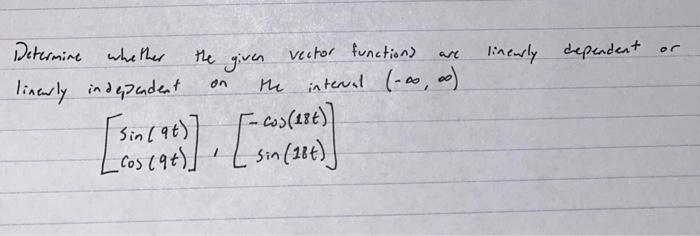 Determine whether the given vector functions are linearly dependent or
linearly independent on the interval (-∞, ∞)
[sin(9t) cos(9t)], [-cos(18t) sin(18t)]